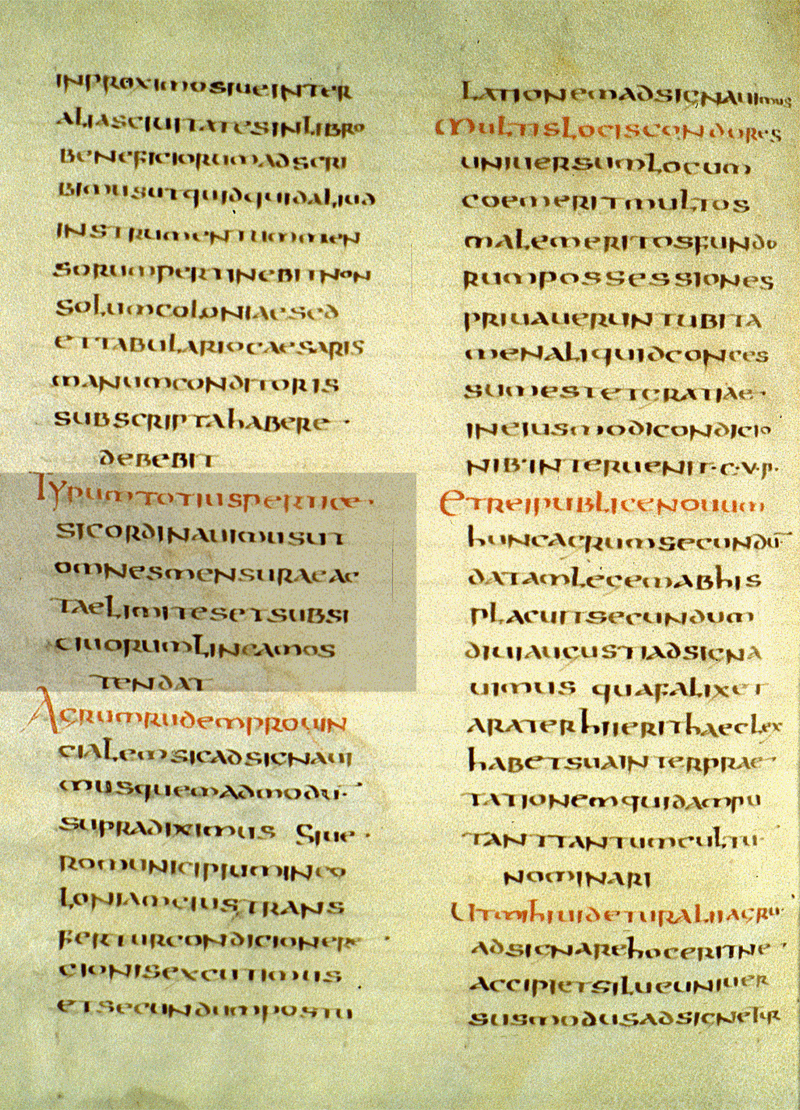 INPROXIMOSIUEINTER
ALIASCIUITATESINLIBRO
BENEFICIORUMADSCRI
BIMUSUTQUIDQUIDALIUD
INSTRUMENTUMMEN
SORUMPERTINEBITNON
SOLUMCOLONIAESED
ETTABULARIOCAESARIS
MANUMCONDITORIS
SUBSCRIPTAHABERE·
DEBEBIT
TYPUMTOTIUSPERTICE·
SICORDINAUIMUSUT
OMNESMENSURAEAC
TAELIMITESETSUBSI
CIUORUMLINEAMOS
TENDAT
AGRUMRUDEMPROUIN
CIALEMSICADSIGNAUI
MUSQUEMADMODU·
SUPRADIXIMUS SIUE·
ROMUNICIPIUMINCO
LONIAMEIUSTRANS
FERTURCONDICIONERE·
GIONISEXCUTIMUS
ETSECUNDUMPOSTU
LATIONEMADSIGNAUIMUS
MULTISLOCISCONDORES
UNIUERSUMLOCUM
COEMERITMULTOS
MALEMERITOSFUNDO
RUMPOSSESSIONES
PRIUAUERUNTUBITA
MENALIQUIDCONCES
SUMESTETGRATIAE·
INEIUSMODICONDICIO
NIB·INTERUENIT·C·V·P·
ETREIPUBLICENOUUM
HUNCAGRUMSECUNDŪ
DATAMLEGEMABHIS
PLACUITSECUNDUM
DIUIAUGUSTIADSIGNA
UIMUS QUAFALIXET
ARATERHITERITHAECLEX
HABETSUAINTERPRAE·
TATIONEMQUIDAMPU
TANTTANTUMCULTU
NOMINARI
UTMIHIUIDETURALITAGRU
ADSIGNAREHOCERITNE·
ACCIPIETSILUEUNIUER
SUSMODUSADSIGNETUR